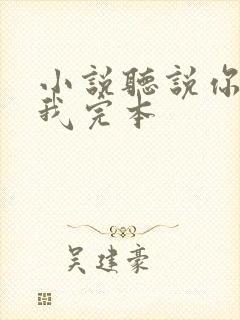 小說聽說你
我完本
吴建豪